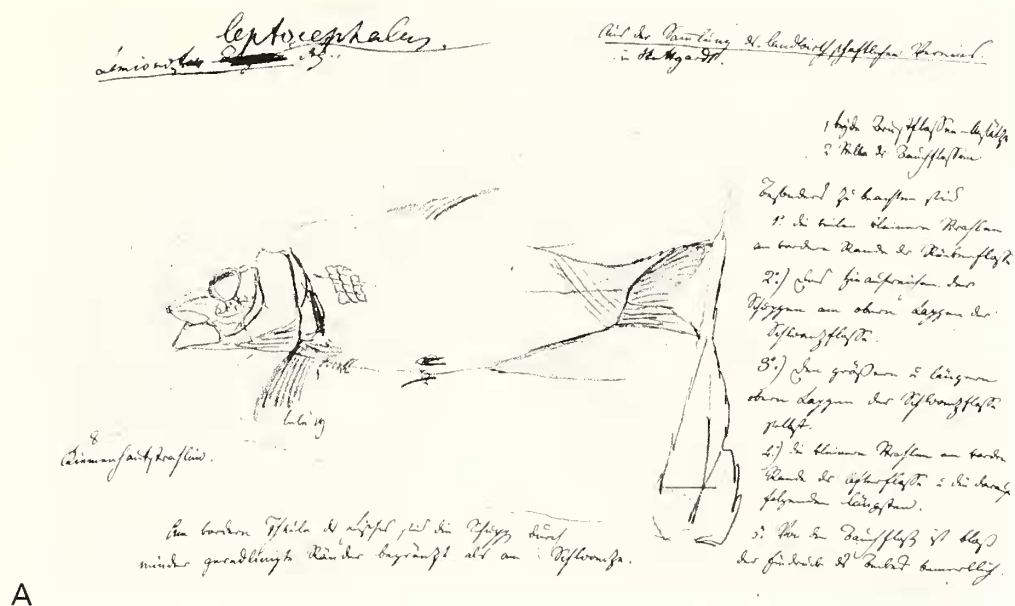 leptocephalus
Aus der Samlung des landwirthschaftlichen Vereins
in Stuttgardt.
1 beyde Brustflossen-
2 Stelle der Bauchflossen
Besonders zu beachten sind
1.º die vielen kleinern Strahlen
am vordern Rande der Rückenfloße
2.º) Das Hinaufreichen der
Schuppen am obern Lappen der
Schwanzfloße.
3.º) Den größern u längern
obern Lappen der Schwanzfloße
selbst.
4.) die kleinern Strahlen am vordern
Rande der Afterfloße u die darauf
folgenden längsten.
5. Von den Bauchfloß ist bloß
der Eindruck des bemerklich.
8
Kiemenhautstrahlen.
Am vordern Theile des Fisches sind die Schuppen durch
minder geradlinigte Ränder begränzt als am Schwanze.
A